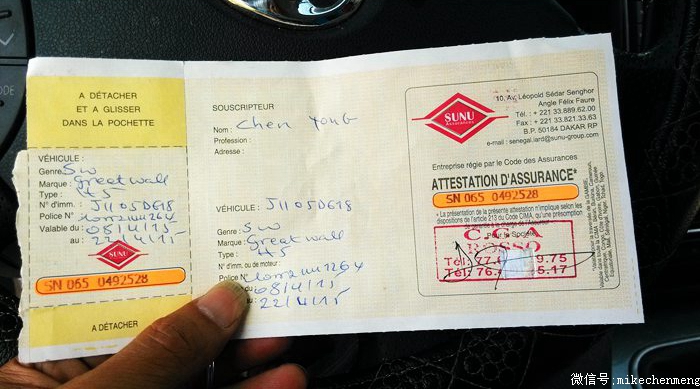 A DÉTACHER
ET A GLISSER
DANS LA POCHETTE
VÉHICULE :
Genre : SW
Marque : Great wall
Type : H5
N° d'imm. : J1105DG18
Police N°
Valable du : 08/4/15
au : 22/4/15
SUNU
SN 065 0492528
A DÉTACHER
SOUSCRIPTEUR
Nom : Chen
Profession :
Adresse :
VÉHICULE : J1105DG18
Genre : SW
Marque : Great wall
Type : H5
N° d'imm. ou de moteur :
Police N°
08/4/15
22/4/15
SUNU
Assurances
10, Av. Léopold Sédar Senghor
Angle Félix Faure
Tél. : + 221 33.889.62.00
Fax : + 221 33.821.33.63
B.P. 50184 DAKAR RP
e-mail : senegal.iard@sunu-group.com
Entreprise régie par le Code des Assurances
ATTESTATION D'ASSURANCE*
SN 065 0492528
• La présentation de la présente attestation n'implique selon les
dispositions de l'article 213 du Code CIMA, qu'une présomption
Pour la Société
C.C.A
ROSSO
Tél: 77. 9.75
Tél: 76. 5.17
微信号:mikechenmeng